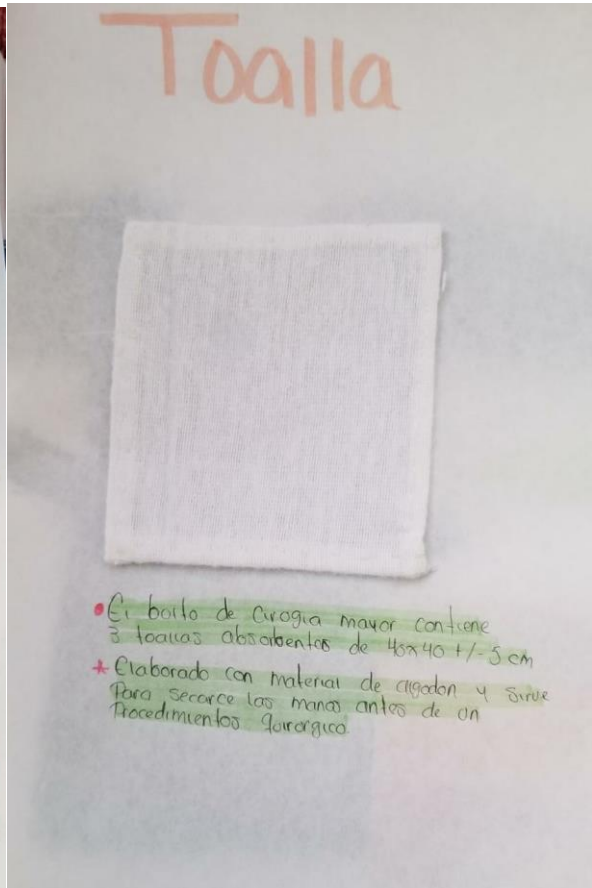 Toalla
El bolto de Cirogia mayor contiene
3 toallas absorbentes de 40x40 +/- 5 cm
Elaborado con material de algodon y sirve
Para secarce las manos antes de un
Procedimientos quirorgico